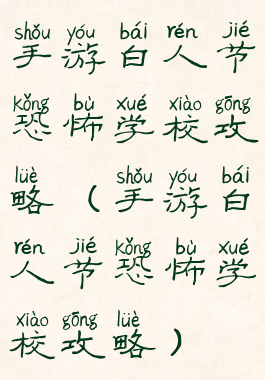 shǒu yóu bái rén jié
手游白人节
kǒng bù xué xiào gōng
恐怖学校攻
lüè shǒu yóu bái
略（手游白
rén jié kǒng bù xué
人节恐怖学
xiào gōng lüè
校攻略）